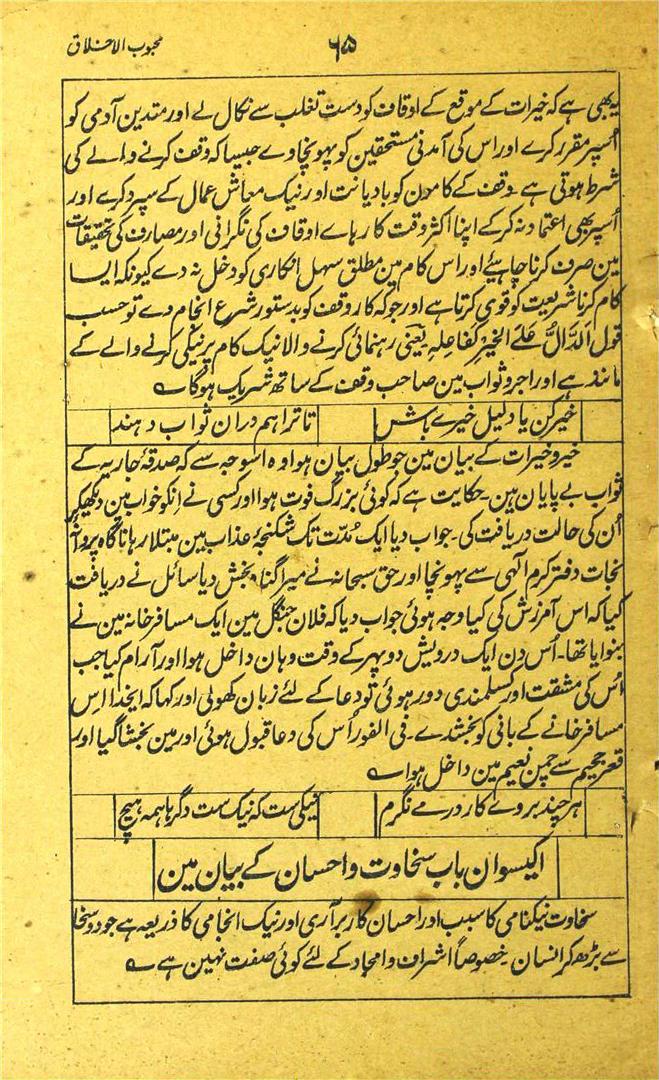 ۶۵
محبوب الاخلاق
یہ بھی ہے کہ خیرات کے موقع کے اوقاف کو دست تغلب سے نکال لے اور متدین آدمی کو
اُسپر مقرر کرے اور اس کی آمدنی مستحقین کو پہونچاوے جیسا کہ وقف کرنے والے کی
شرط ہوتی ہے وقف کے کامون کو بادیانت اور نیک معاش عمال کے سپرد کرے اور
اُسپر بھی اعتماد نہ کرکے اپنا اکثر وقت کا رہاے اوقاف کی نگرانی اور مصارف کی تحقیقات
مین صرف کرنا چاہیئے اور اس کام مین مطلق سہل انکاری کو دخل نہ دے کیونکہ ایسا
کام کرنا شریعت کو قوی کرتا ہے اور جو کہ کار وقف کو بدستور شرع انجام دے تو حسب
قول اَلدَّالُّ عَلَے الخیرِ کَفَاعِلِہٖ یعنی رہنمائی کرنے والا نیک کام پر نیکی کرنے والے کے
مانند ہے اور اجر و ثواب مین صاحب وقف کے ساتھ شریک ہوگا ؎
خیر کن یا دلیل خیرے باش
تا ترا ہم دران ثواب دہند
خیر و خیرات کے بیان مین جو طول بیان ہوا وہ اسوجہ سے کہ صدقۂ جاریہ کے
ثواب بے پایان ہین۔ حکایت ہے کہ کوئی بزرگ فوت ہوا اور کسی نے انکو خواب مین دیکھکر
اُن کی حالت دریافت کی۔ جواب دیا ایک مُدّت تک شکنجۂ عذاب مین مبتلا رہا ناگاہ پروانۂ
نجات دفتر کرم آلہی سے پہونچا اور حق سبحانہ نے میرا گناہ بخش دیا سائل نے دریافت
کیا کہ اس آمرزش کی کیا وجہ ہوئی جواب دیا کہ فلان جنگل مین ایک مسافر خانہ مین نے
بنوایا تھا۔ اُس دِن ایک درویش دوپہر کے وقت وہان داخل ہوا اور آرام کیا جب
اُس کی مشقت اور کسلمندی دور ہوئی تو دعا کے لئے زبان کھولی اور کہا کہ ایخدا اِس
مسافر خانے کے بانی کو بخشدے۔ فی الفور اُس کی دعا قبول ہوئی اور مین بخشا گیا اور
قعر جحیم سے چمن نعیم مین داخل ہوا ؎
ہر چند بروے کار در مے نگرم
نیکی ست کہ نیک ست دگر ہا ہمہ ہیچ
اکیسوان باب سخاوت و احسان کے بیان مین
سخاوت نیکنامی کا سبب اور احسان کار برآری اور نیک انجامی کا ذریعہ ہے جود و سخا
سے بڑھ کر انسان خصوصاً اشراف و امجاد کے لئے کوئی صفت نہین ہے ؎